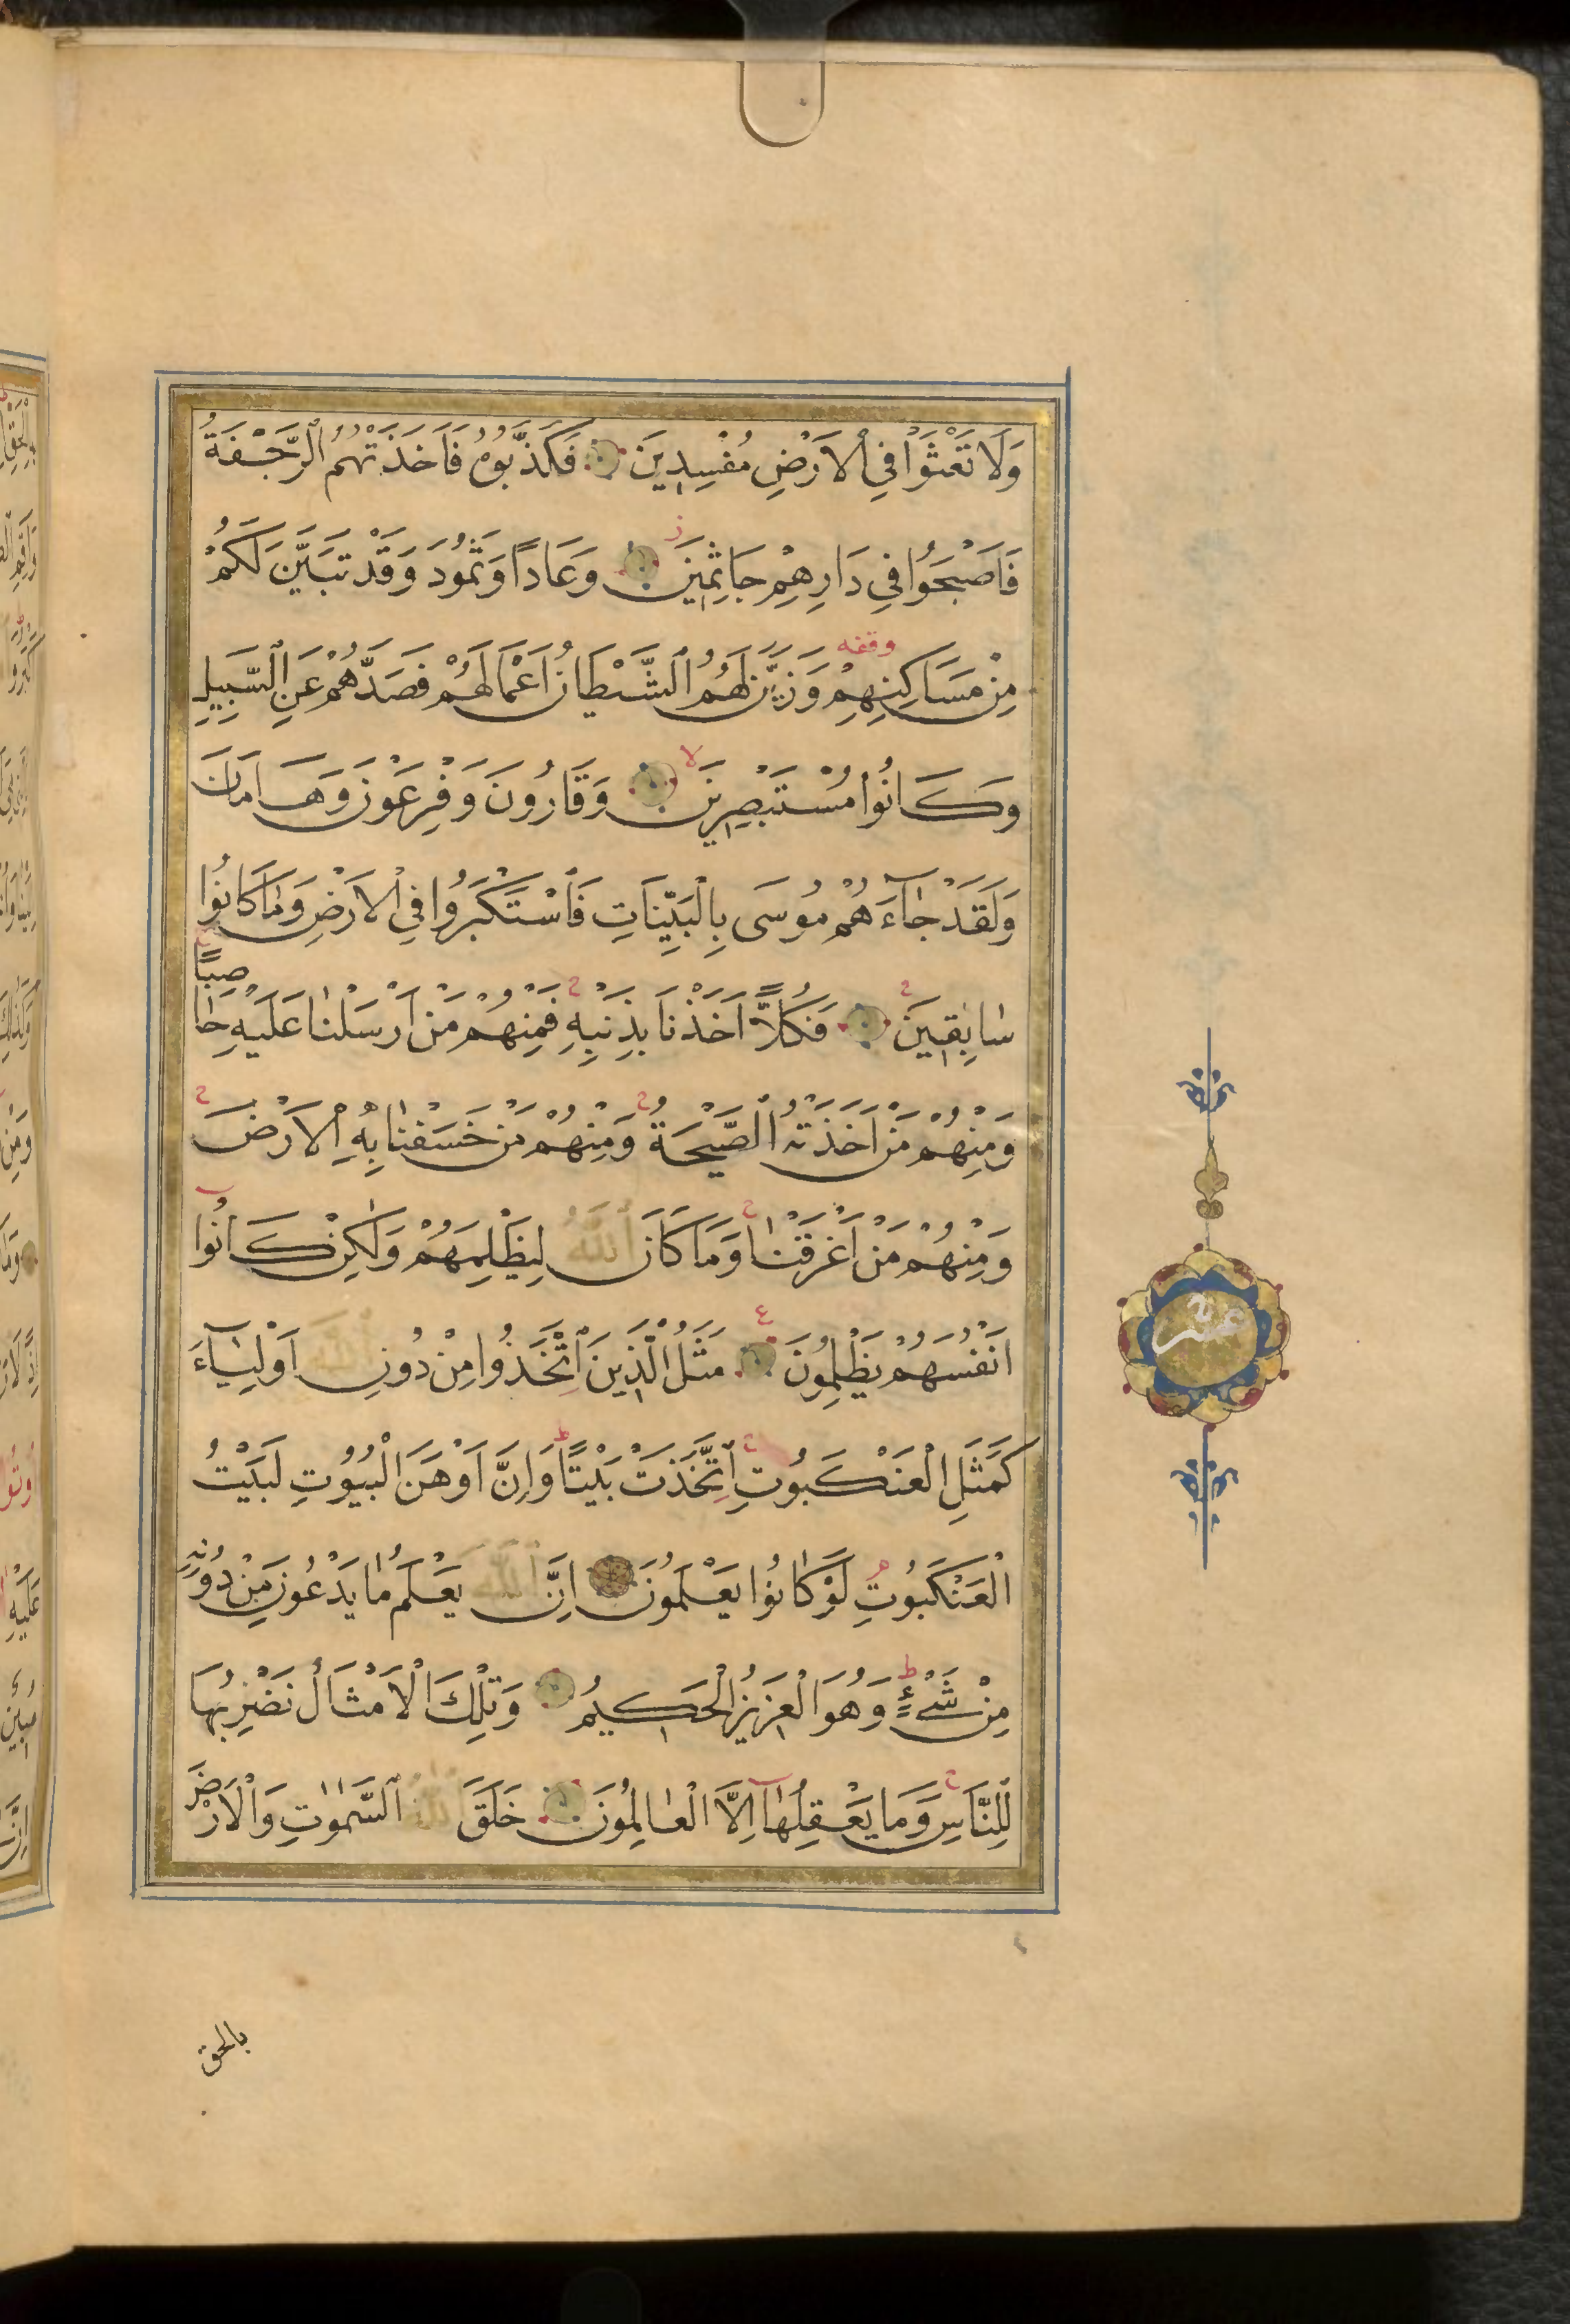 وَلَا تَعْثَوْا فِي الْاَرْضِ مُفْسِدِينَ فَكَذَّبُوهُ فَاَخَذَتْهُمُ الرَّجْفَةُ
فَاَصْبَحُوا فِي دَارِهِمْ جَاثِمِينَ ز وَعَادًا وَثَمُودَ وَقَدْ تَبَيَّنَ لَكُمْ
مِنْ مَسَاكِنِهِمْ وقفه وَزَيَّنَ لَهُمُ الشَّيْطَانُ اَعْمَالَهُمْ فَصَدَّهُمْ عَنِ السَّبِيلِ
وَكَانُوا مُسْتَبْصِرِينَ لا وَقَارُونَ وَفِرْعَوْنَ وَهَامَانَ
وَلَقَدْ جَاءَهُمْ مُوسَى بِالْبَيِّنَاتِ فَاسْتَكْبَرُوا فِي الْاَرْضِ وَمَا كَانُوا
سَابِقِينَ ح فَكُلًّا اَخَذْنَا بِذَنْبِهِ ح فَمِنْهُمْ مَنْ اَرْسَلْنَا عَلَيْهِ حَاصِبًا ج
وَمِنْهُمْ مَنْ اَخَذَتْهُ الصَّيْحَةُ ح وَمِنْهُمْ مَنْ خَسَفْنَا بِهِ الْاَرْضَ ح
وَمِنْهُمْ مَنْ اَغْرَقْنَا ح وَمَا كَانَ اللّٰهُ لِيَظْلِمَهُمْ وَلٰكِنْ كَانُوا
اَنْفُسَهُمْ يَظْلِمُونَ ع مَثَلُ الَّذِينَ اتَّخَذُوا مِنْ دُونِ اللّٰهِ اَوْلِيَاءَ
كَمَثَلِ الْعَنْكَبُوتِ ح اِتَّخَذَتْ بَيْتًا ط وَاِنَّ اَوْهَنَ الْبُيُوتِ لَبَيْتُ
الْعَنْكَبُوتِ م لَوْ كَانُوا يَعْلَمُونَ اِنَّ اللّٰهَ يَعْلَمُ مَا يَدْعُونَ مِنْ دُونِهِ
مِنْ شَيْءٍ ط وَهُوَ الْعَزِيزُ الْحَكِيمُ وَتِلْكَ الْاَمْثَالُ نَضْرِبُهَا
لِلنَّاسِ ح وَمَا يَعْقِلُهَا اِلَّا الْعَالِمُونَ خَلَقَ اللّٰهُ السَّمٰوَاتِ وَالْاَرْضَ
عشر
بالحق